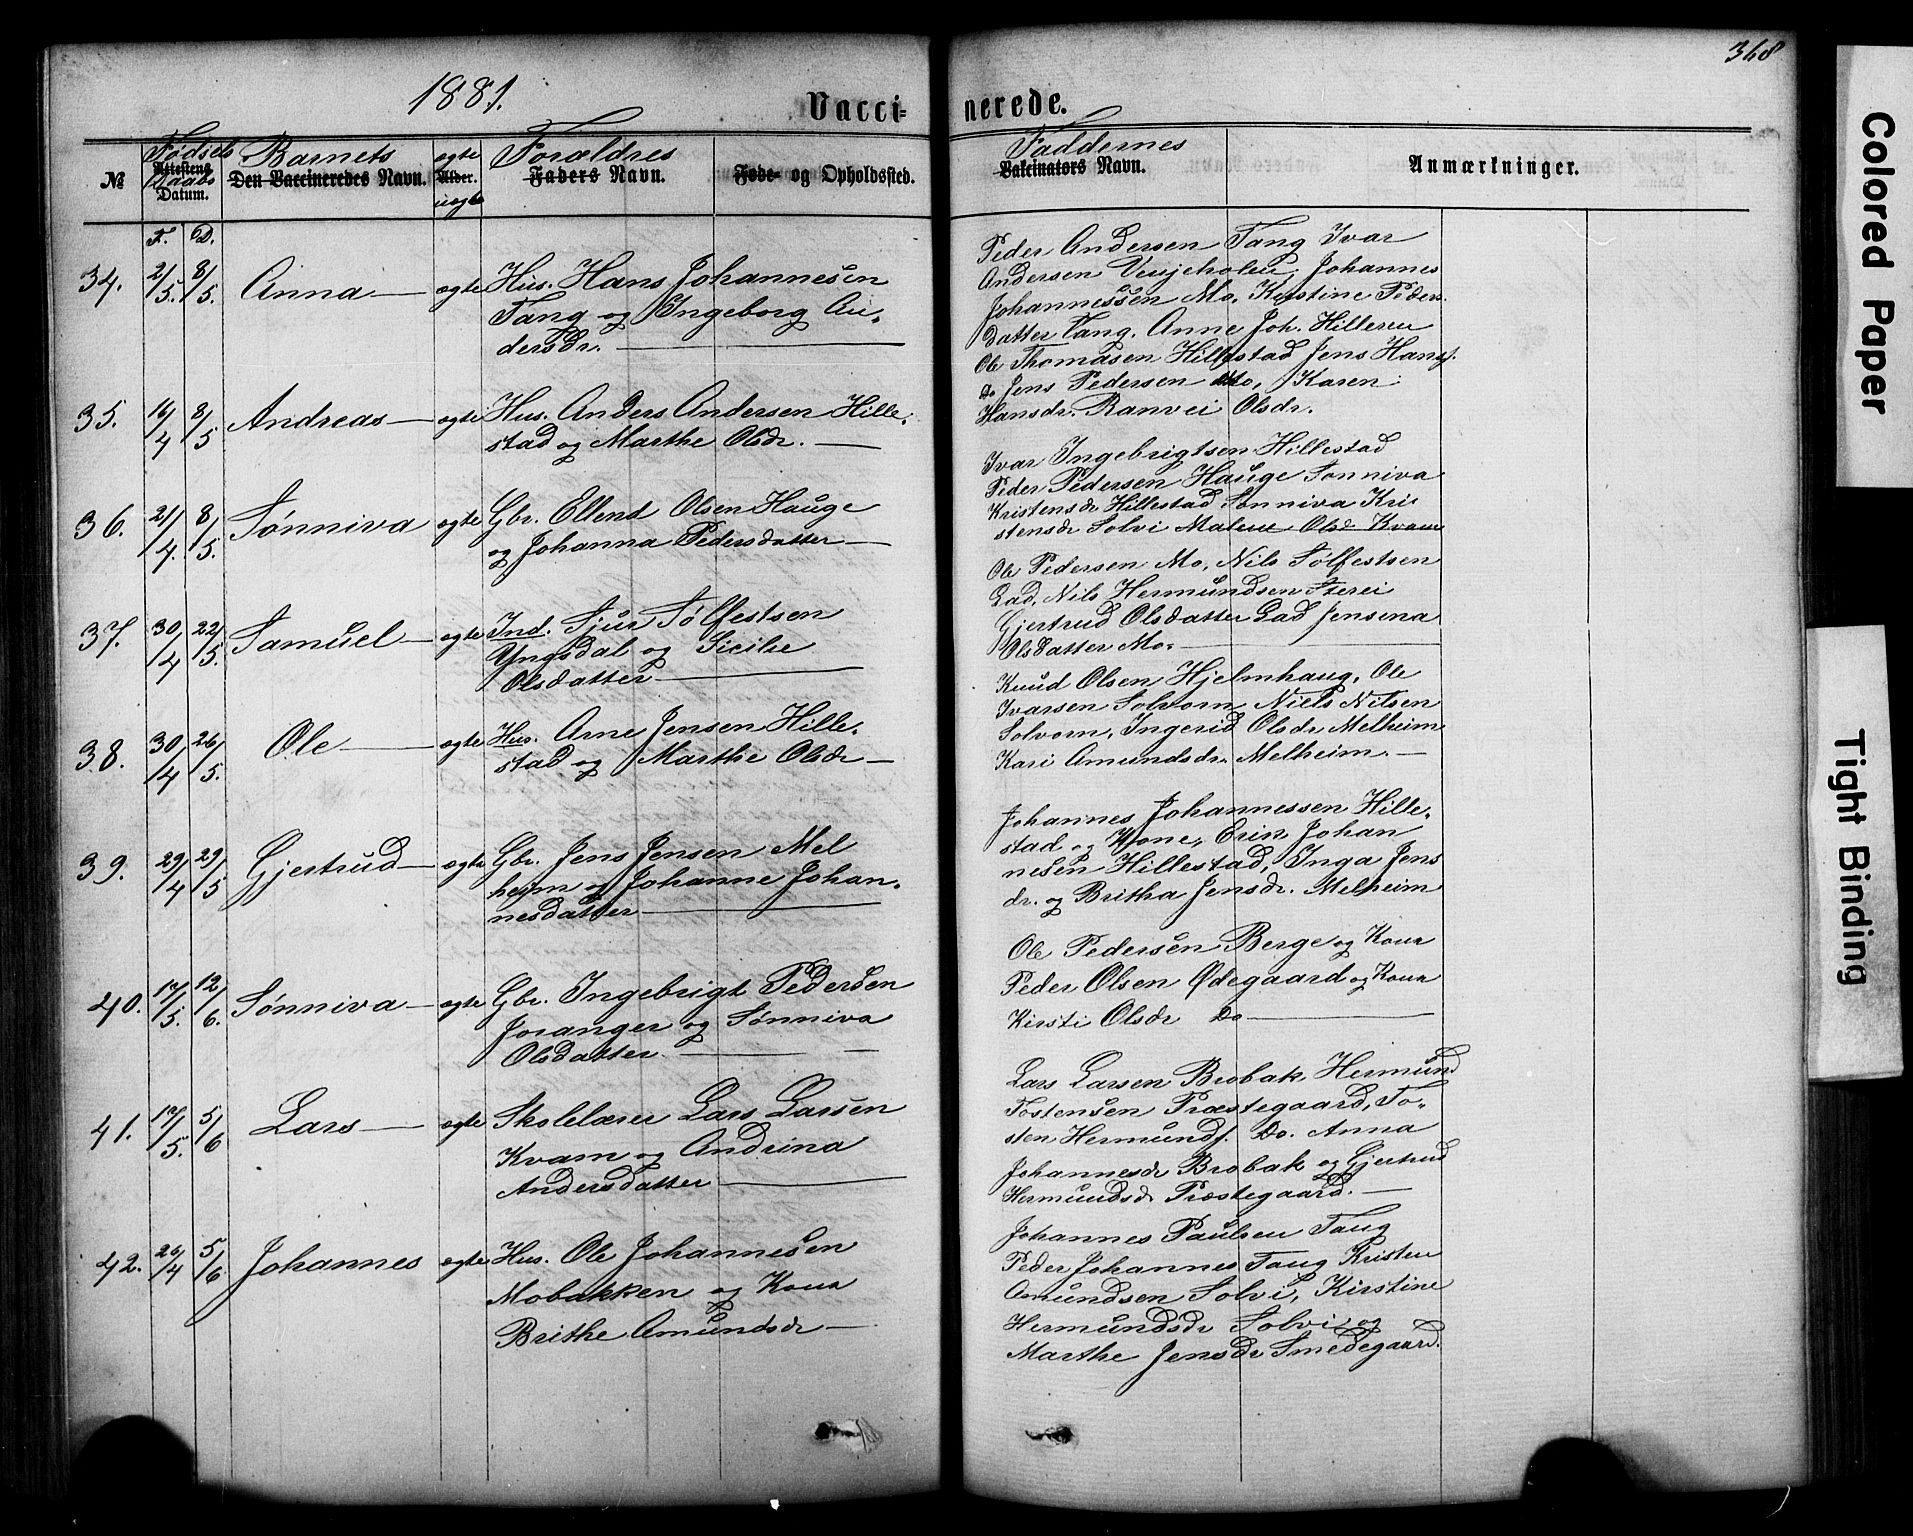 368
1881.
Vacci-
nerede.
№
Fødsels
Attestens
Daabs
Datum.
Barnets
Den Vaccineredes Navn.
ægte
Alder.
uægte
Forældres
Faders Navn.
Føde- og Opholdssted.
Faddernes
Vakcinators Navn.
Anmærkninger.
F. D.
34. 2/5. 8/5. Anna — ægte Hus. Hans Johannesen
Tang og Ingeborg An-
dersdr. —
Peder Andersen Tang Ivar
Andersen Johannes
Johannessen Mo, Kirstine Peders
datter Tang. Anne Joh. Hilleren
35. 16/4 8/5 Andreas — ægte Hus. Anders Andersen Hille-
stad og Marthe Olsdr. —
Ole Thomasen Hillestad Jens Hans.
Do Jens Pedersen Mo, Karen
Hansdr. Ranvei Olsdr.
36. 21/4. 8/5. Sønniva ægte Gbr. Ellend Olsen Hauge
og Johanna Pedersdatter —
Ivar Ingebrigtsen Hillestad
Peder Pedersen Hauge Sønniva
Kristensdr Hillestad Sønniva Kri
stensdr Solvi Malene Olsdr Kvam
37. 30/4 22/5. Samuel — ægte Ind. Sjur Sølfestsen
Yngsdal og Sicilie
Olsdatter —
Ole Pedersen Mo, Nils Sølfestsen
Lad, Nils Hermundsen
Gjertrud Olsdatter Lad Jensina
Olsdatter Mo. —
38. 30/4 26/5. Ole — ægte Hus. Arne Jensen Hille-
stad og Marthe Olsdr —
Knud Olsen Hjelmhaug, Ole
Ivarsen Solvorn, Niels Nilsen
Solvorn, Ingerid Olsdr Melheim
Kari Amundsdr. Melheim. —
39. 29/4 29/5 Gjertrud — ægte Gbr. Jens Jensen Mel
heim og Johanne Johan-
nesdatter —
Johannes Johannessen Hille-
stad og Kone, Erik Johan
nesen Hillestad, Inga Jens
dr. og Britha Jensdr. Melheim
40. 17/5. 12/6. Sønniva — ægte Gbr. Ingebrigt Pedersen
Joranger og Sønniva
Olsdatter. —
Ole Pedersen Berge og Kona
Peder Olsen Ødegaard og Kona
Kirsti Olsdr Do —
41. 17/5. 5/6 Lars — ægte Skolelærer Lars Larsen
Kvam og Andrina
Andersdatter —
Lars Larsen Brobak Hermund
Tostensen Præstegaard, To-
sten Hermunds. Do. Anna
Johannesdr Brobak og Gjertrud
Hermundsdr Præstegaard. —
42. 26/4 5/6. Johannes ægte Hus. Ole Johannesen
Mobakken og Kona
Brithe Amundsdr —
Johannes Paulsen Tang
Peder Johannes Tang Kristen
Amundsen Solvi, Kirstine
Hermundsdr Solvi og
Marthe Jensdr Smedegaard.
Colored Paper
Tight Binding